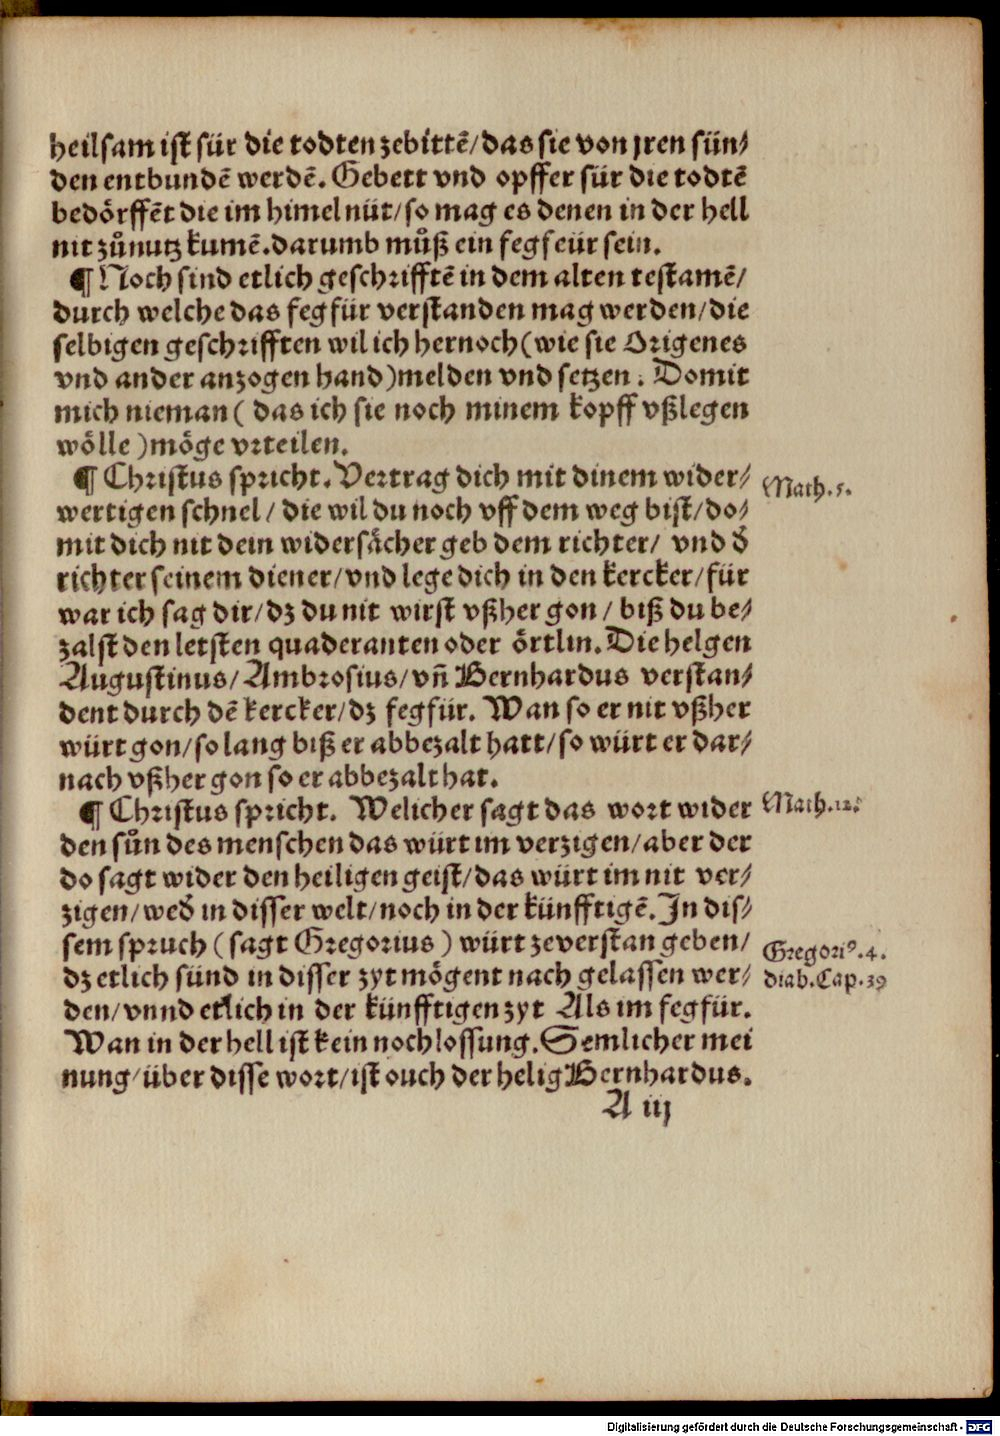 heilsam ist für die todten zebittē/das sie von jren sün⸗
den entbundē werdē. Gebett vnd opffer für die todtē
bedörffēt die im himel nüt/so mag es denen in der hell
nit zůnutz kumē.darumb můß ein fegfeür sein.
¶ Noch sind etlich geschrifftē in dem alten testamē/
durch welche das fegfür verstanden mag werden/die
selbigen geschrifften wil ich hernoch(wie sie Origenes
vnd ander anzogen hand)melden vnd setzen. Domit
mich nieman( das ich sie noch minem kopff vßlegen
wölle)möge vrteilen.
¶ Christus spricht. Vertrag dich mit dinem wider⸗
wertigen schnel/ die wil du noch vff dem weg bist/do⸗
mit dich nit dein widersächer geb dem richter/ vnd d̕
richter seinem diener/vnd lege dich in den kercker/für
war ich sag dir/dz du nit wirst vßher gon/ biß du be⸗
zalst den letsten quaderanten oder örtlin. Die helgen
Augustinus/Ambrosius/vn̄ Bernhardus verstan⸗
dent durch dē kercker/dz fegfür. Wan so er nit vßher
würt gon/so lang biß er abbezalt hatt/so würt er dar⸗
nach vßher gon so er abbezalt hat.
¶ Christus spricht. Welicher sagt das wort wider
den sůn des menschen das würt im verzigen/aber der
do sagt wider den heiligen geist/das würt im nit ver⸗
zigen/wed̕ in disser welt/noch in der künfftigē. In dis⸗
sem spruch (sagt Gregorius) würt zeverstan geben/
dz etlich sünd in disser zyt mögent nach gelassen wer⸗
den/vnnd etlich in der künfftigen zyt Als im fegfür.
Wan in der hell ist kein nochlossung. Semlicher mei
nung/über disse wort/ist ouch der helig Bernhardus.
A iij
Math.5.
Math.12.
Gregoriꝰ.4.
diab.Cap.39
Digitalisierung gefördert durch die Deutsche Forschungsgemeinschaft - DFG